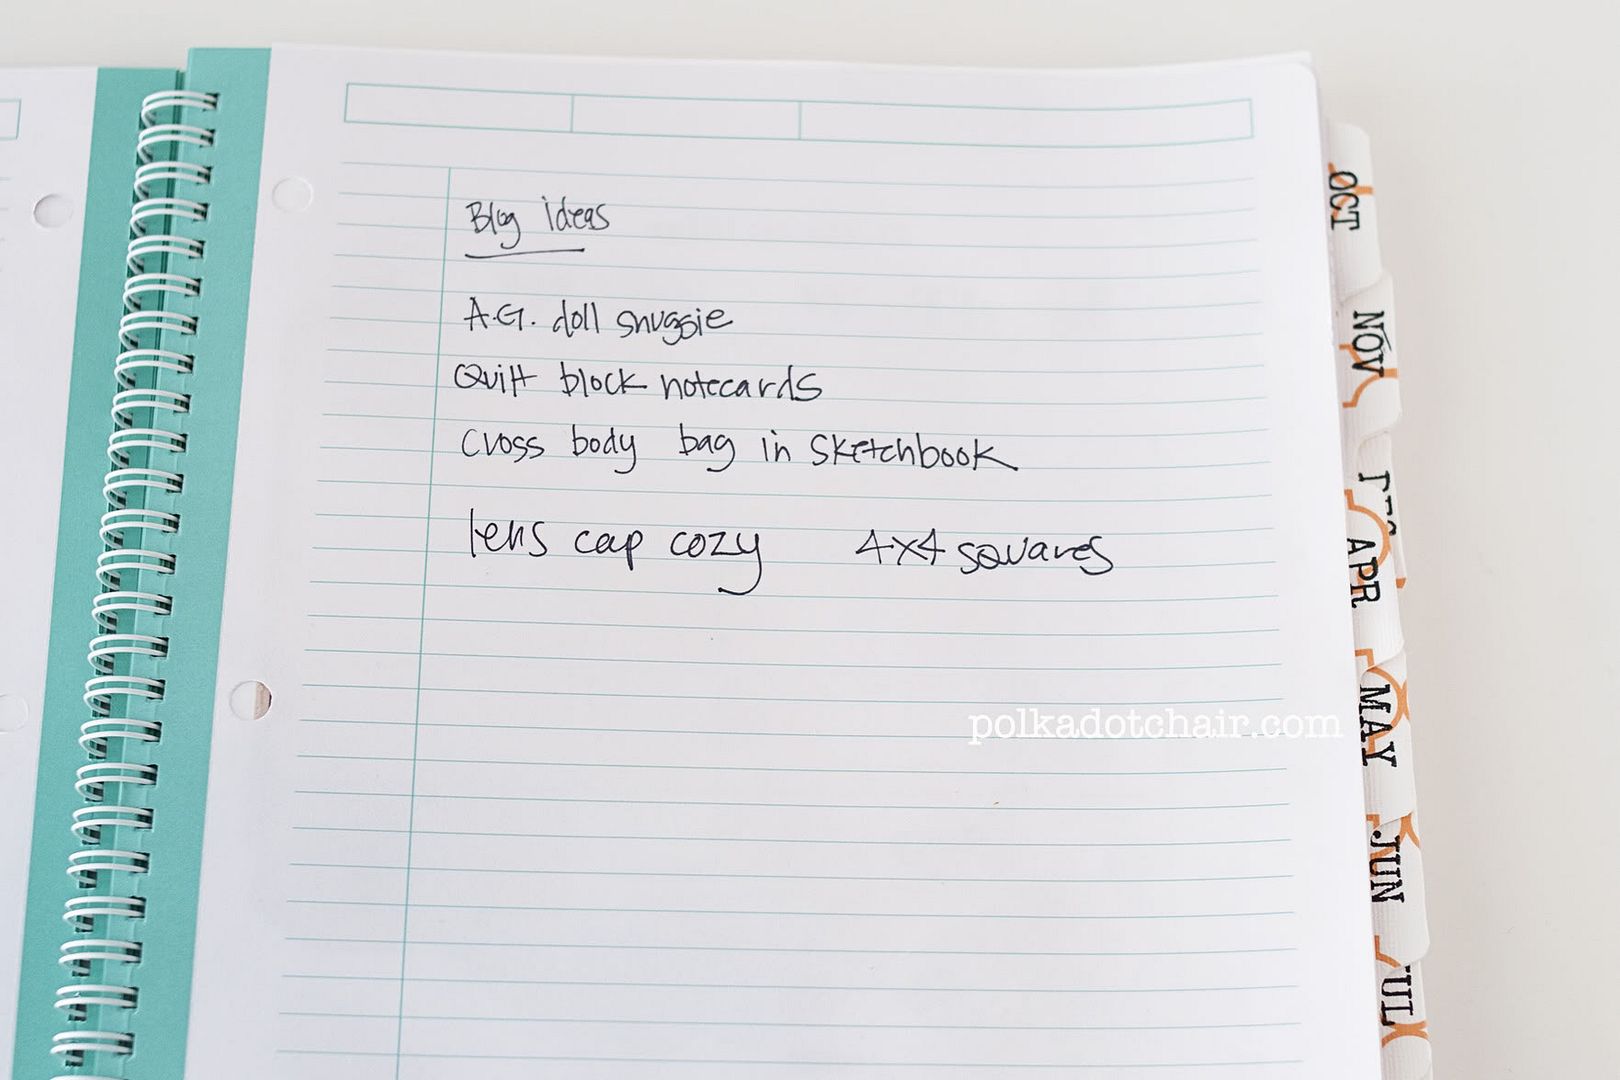 Blog ideas
A.G. doll snuggie
Quilt block notecards
cross body bag in sketchbook
lens cap cozy 4x4 squares
polkadotchair.com
OCT
NOV
DEC
APR
MAY
JUN
JUL